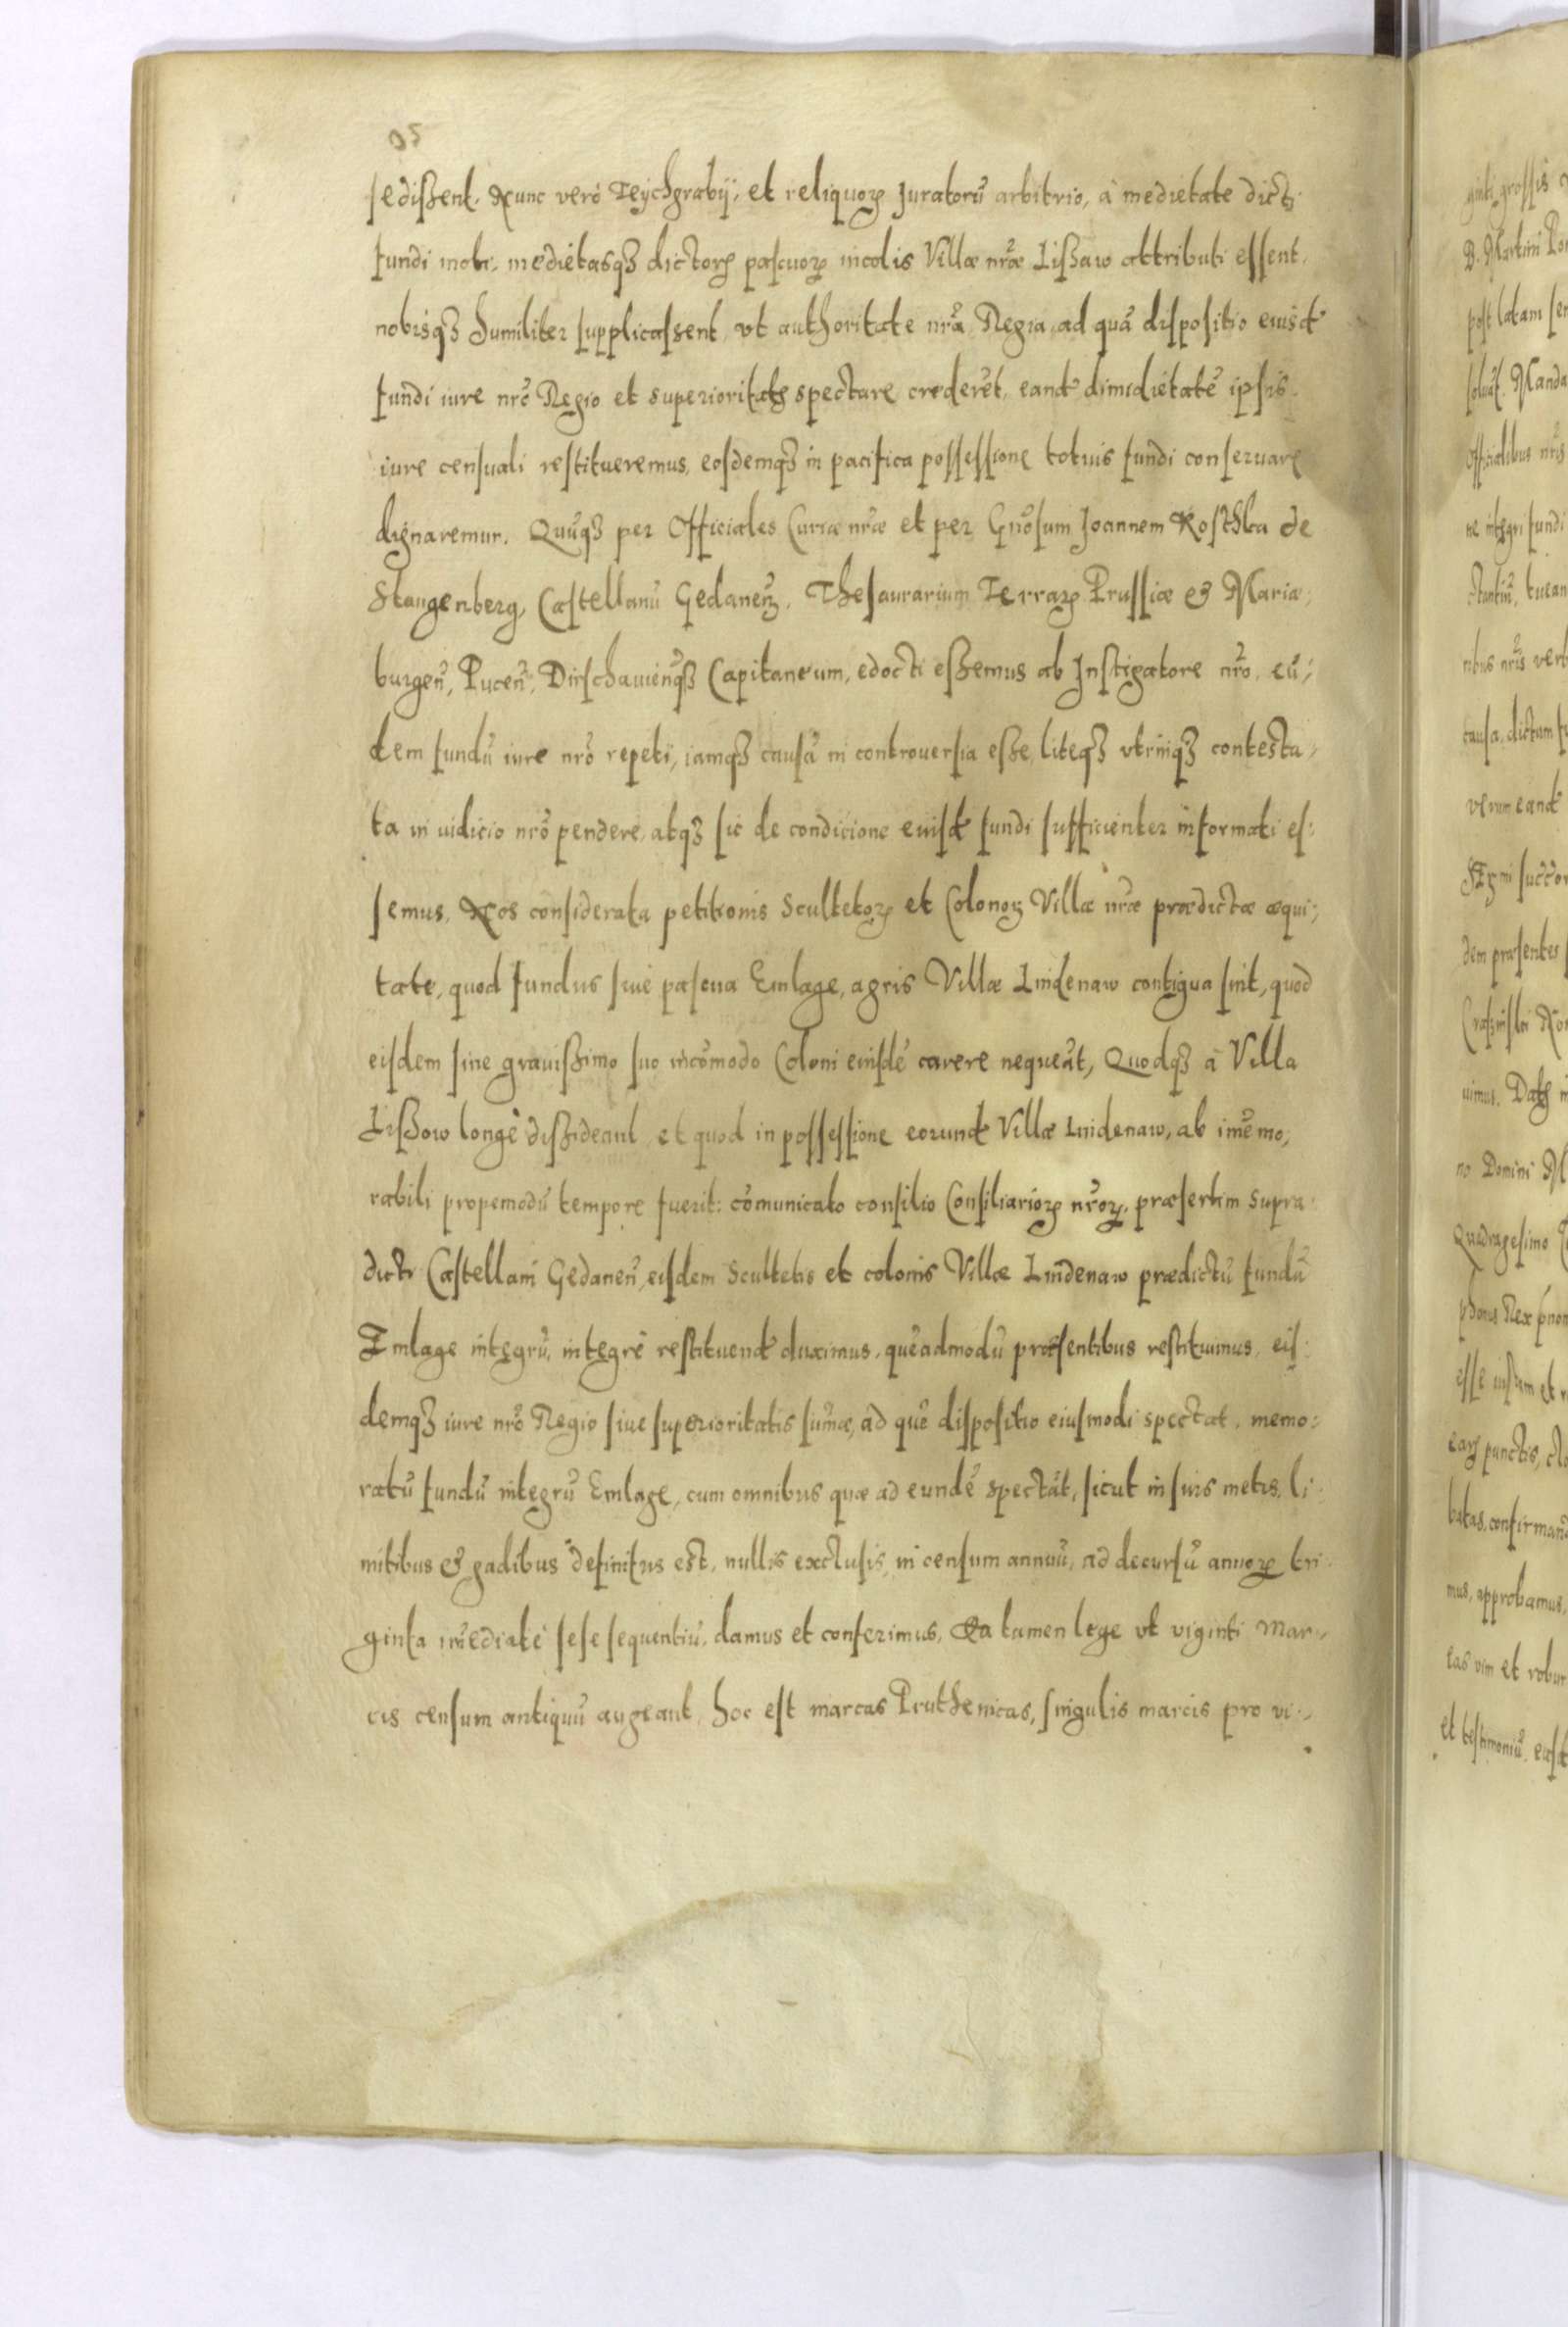 sedissent. Nunc verò Teychgrabij, et reliquoꝝ Juratorũ arbitrio, à medietate dicti
fundi moti, medietasqꝫ dictorꝝ pascuoꝝ incolis Villæ nr̃æ Lissaw attributi essent,
nobisqꝫ humiliter supplicassent, vt authoritate nr̃a Regia, ad quã dispositio eiusd̃
fundi iure nr̃o Regio et superioritatis spectare crederẽt, eand̃ dimidietatẽ ipsis
iure censuali restitueremus, eosdemqꝫ in pacifica possessione totius fundi conseruare
dignaremur. Quũqꝫ per Officiales Curiæ nr̃æ et per Gñosum Joannem Kosthka de
Stangenberg, Castellanũ Gedaneñ, Thesaurarium Terraꝝ Prussiæ & Mariæ,
burgeñ, Puceñ, Dirschauieñqꝫ Capitaneum, edocti essemus ab Instigatore nr̃o, eũ,
dem fundũ iure nr̃o repeti, iamqꝫ causã in controuersia esse, liteqꝫ vtrinqꝫ contesta,
ta in iudicio nr̃o pendere, atqꝫ sic de condicione eiusd̃ fundi sufficienter informati es:
semus, Nos considerata petitionis Scultetoꝝ et Colonoꝝ Villæ nr̃æ prædictæ æqui,
tate, quod fundus siue pascua Emlage, agris Villæ Lindenaw contigua sint, quod
eisdem sine grauissimo suo incõmodo Coloni eiusdẽ carere nequeãt, Quodqꝫ à Villa
Lissow longè dissideant, et quod in possessione eorund̃ Villæ Lindenaw, ab im̃emo,
rabili propemodũ tempore fuerit: cõmunicato consilio Consiliarioꝝ nr̃oꝝ, præsertim supra
dicti Castellani Gedaneñ, eisdem Scultetis et colonis Villæ Lindenaw prædictũ fundũ
Emlage integrũ, integrè restituend̃ duximus, quẽadmodũ præsentibus restituimus, eis:
demqꝫ iure nr̃o Regio siue superioritatis sum̃æ, ad quẽ dispositio eiusmodi spectat, memo:
ratũ fundũ integrũ Emlage, cum omnibus quæ ad eundẽ spectãt, sicut in suis metis, li
mitibus & gadibus definitus est, nullis exclusis, in censum annuũ, ad decursũ annoꝝ tri
ginta im̃ediatè sese sequentiũ, damus et conferimus, Ea tamen lege vt viginti Mar,
cis censum antiquũ augeant, hoc est marcas Pruthenicas, singulis marcis pro vi,
ginti grossis
D. Martini
post latam
soluãt. Manda
Officialibus nr̃is
ne integri fundi
tuean
ribus nr̃is verb
causa, dictum
verum eand̃
dem præsentes
uimus. Datꝫ
no Domini M
Quadragesimo
esse iustum et
punctis,
batas, confirmand
mus, approbamus,
eas vim et robur
et testimoniũ